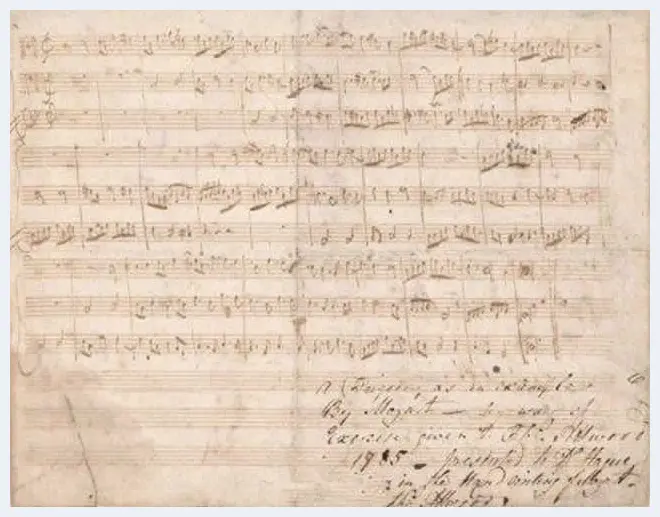 as an example
By Mozart — by way of
Exercise given to Thos. Attwood
1785 — presented to Dr Hague
in the Hand writing of Mozart
Thos Attwood